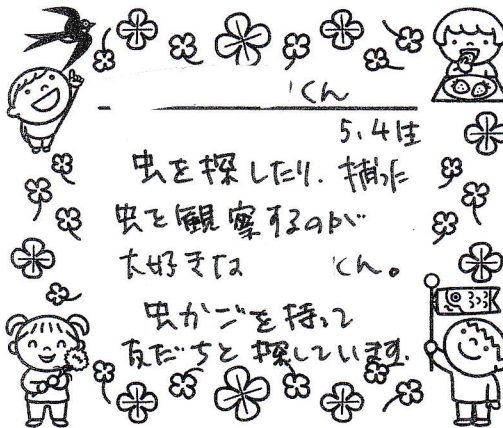 くん
5.4生
虫を探したり、捕った
虫を観察するのが
大好きな　　くん。
虫かごを持って
友だちと探しています。